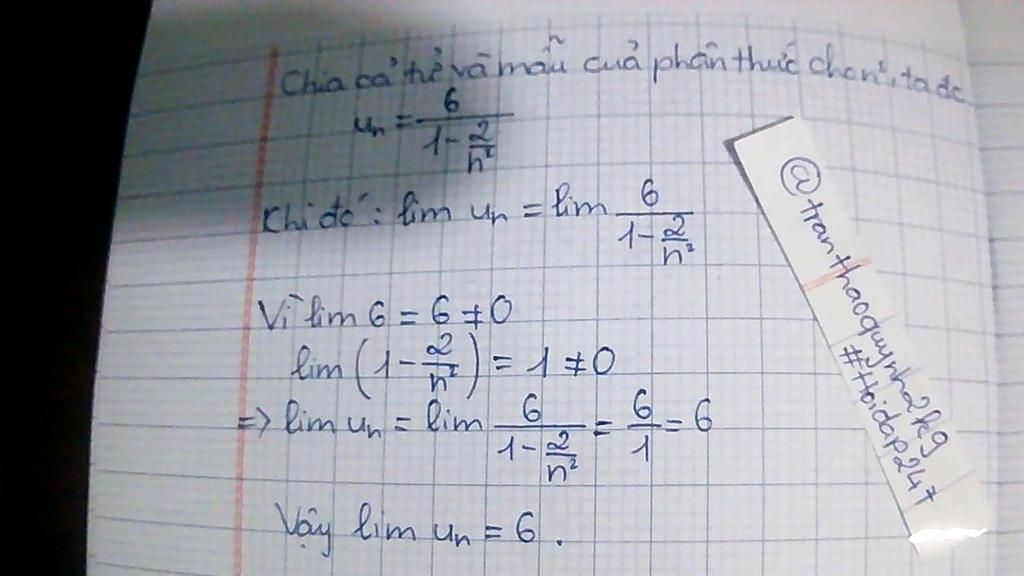 Chia cả tử và mẫu của phân thức cho n², ta đc
uₙ = 6/(1 - 2/n²)
Khi đó: lim uₙ = lim 6/(1 - 2/n²)
Vì lim 6 = 6 ≠ 0
lim (1 - 2/n²) = 1 ≠ 0
=> lim uₙ = lim 6/(1 - 2/n²) = 6/1 = 6
Vậy lim uₙ = 6.
@tranthaoquynh2k9
#Hoidap247